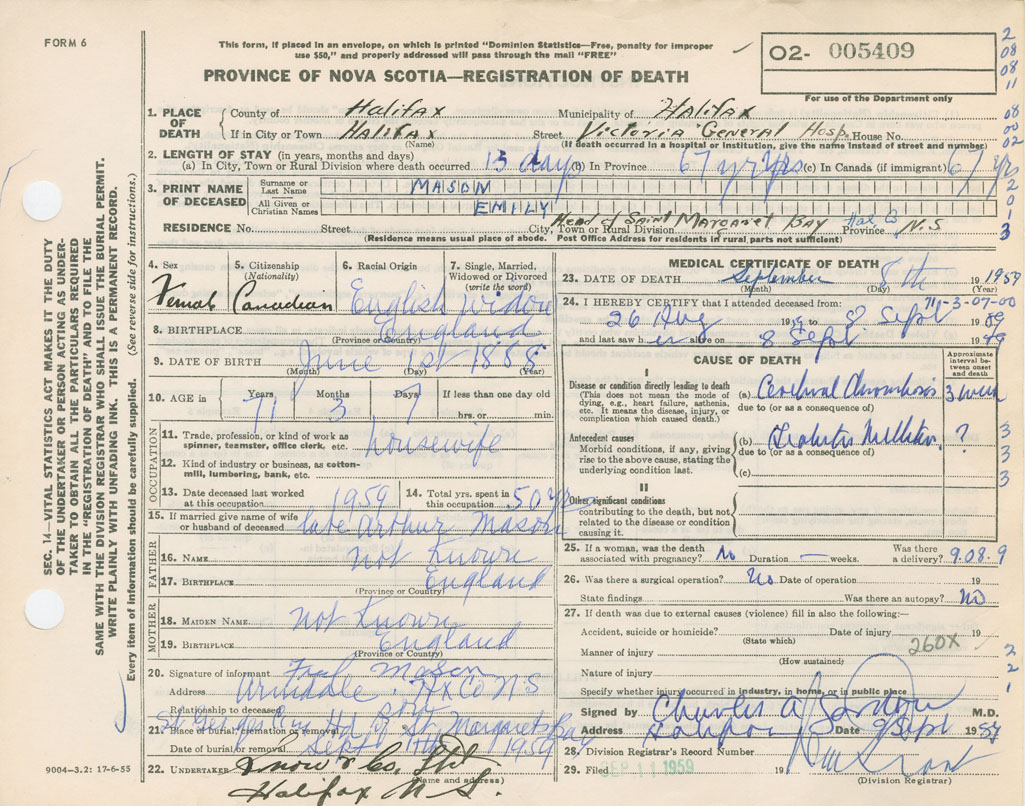 FORM 6
This form, if placed in an envelope, on which is printed "Dominion Statistics—Free, penalty for improper
use $50," and properly addressed will pass through the mail "FREE"
PROVINCE OF NOVA SCOTIA—REGISTRATION OF DEATH
O2- 005409
For use of the Department only
2
08
08
11
08
00
02
2
0
1
3
SEC. 14—VITAL STATISTICS ACT MAKES IT THE DUTY
OF THE UNDERTAKER OR PERSON ACTING AS UNDER-
TAKER TO OBTAIN ALL THE PARTICULARS REQUIRED
IN THE "REGISTRATION OF DEATH" AND TO FILE THE
SAME WITH THE DIVISION REGISTRAR WHO SHALL ISSUE THE BURIAL PERMIT.
WRITE PLAINLY WITH UNFADING INK. THIS IS A PERMANENT RECORD.
Every item of information should be carefully supplied. (See reverse side for instructions.)
1. PLACE OF DEATH
County of Halifax Municipality of Halifax
If in City or Town Halifax Street Victoria General Hosp. House No.
(Name) (If death occurred in a hospital or institution, give the name instead of street and number)
2. LENGTH OF STAY (in years, months and days)
(a) In City, Town or Rural Division where death occurred 13 days (b) In Province 67 yrs (c) In Canada (if immigrant) 67 yrs
3. PRINT NAME OF DECEASED
Surname or Last Name MASON
All Given or Christian Names EMILY
RESIDENCE No. Street City, Town or Rural Division Head of Saint Margaret Bay Hal Co Province N.S
(Residence means usual place of abode. Post Office Address for residents in rural parts not sufficient)
4. Sex 5. Citizenship (Nationality) 6. Racial Origin 7. Single, Married, Widowed or Divorced (write the word)
Female Canadian English Widow
8. BIRTHPLACE England
(Province or Country)
9. DATE OF BIRTH June 1st 1888
(Month) (Day) (Year)
10. AGE in Years Months Days If less than one day
71 3 7 hrs. or min.
OCCUPATION
11. Trade, profession, or kind of work as
spinner, teamster, office clerk, etc. housewife
12. Kind of industry or business, as cotton-
mill, lumbering, bank, etc.
13. Date deceased last worked at this occupation 1959 14. Total yrs. spent in this occupation 50 yrs
15. If married give name of wife
or husband of deceased late Arthur Mason
FATHER
16. NAME Not Known
17. BIRTHPLACE England
(Province or Country)
MOTHER
18. MAIDEN NAME Not Known
19. BIRTHPLACE England
(Province or Country)
20. Signature of informant Mason
Address Armdale. Hx Co N S
Relationship to deceased son
21. Place of burial, cremation or removal St Georges Cem Hd of St. Margarets Bay
Date of burial or removal Sept 11th 1959
22. UNDERTAKER Snow & Co. Ltd
(Name and address)
Halifax N S.
9004-3.2: 17-6-55
MEDICAL CERTIFICATE OF DEATH
23. DATE OF DEATH September 8th 1959
(Month) (Day) (Year)
711-3-07-00
24. I HEREBY CERTIFY that I attended deceased from:
26 Aug 19 to 8 Sept 19 59
and last saw her alive on 8 Sept 19 59
CAUSE OF DEATH
Approximate interval between onset and death
I
Disease or condition directly leading to death
(This does not mean the mode of
dying, e.g., heart failure, asthenia,
etc. It means the disease, injury, or
complication which caused death.)
(a) Cerebral Thrombosis 3 week
due to (or as a consequence of)
Antecedent causes
Morbid conditions, if any, giving
rise to the above cause, stating the
underlying condition last.
(b) Diabetes Mellitus ?
due to (or as a consequence of)
(c)
3
3
3
II
Other significant conditions
contributing to the death, but not
related to the disease or condition
causing it.
25. If a woman, was the death associated with pregnancy? No Duration — weeks. Was there a delivery? 9.08.9
26. Was there a surgical operation? No Date of operation 19
State findings Was there an autopsy? No
27. If death was due to external causes (violence) fill in also the following:—
Accident, suicide or homicide? Date of injury 19
(State which)
260X
Manner of injury
(How sustained)
Nature of injury
2
2
1
Specify whether injury occurred in industry, in home, or in public place
Signed by Charles A M.D.
Address Halifax Date 9 Sept 19 59
28. Division Registrar's Record Number
29. Filed SEP 11 1959 19
(Division Registrar)